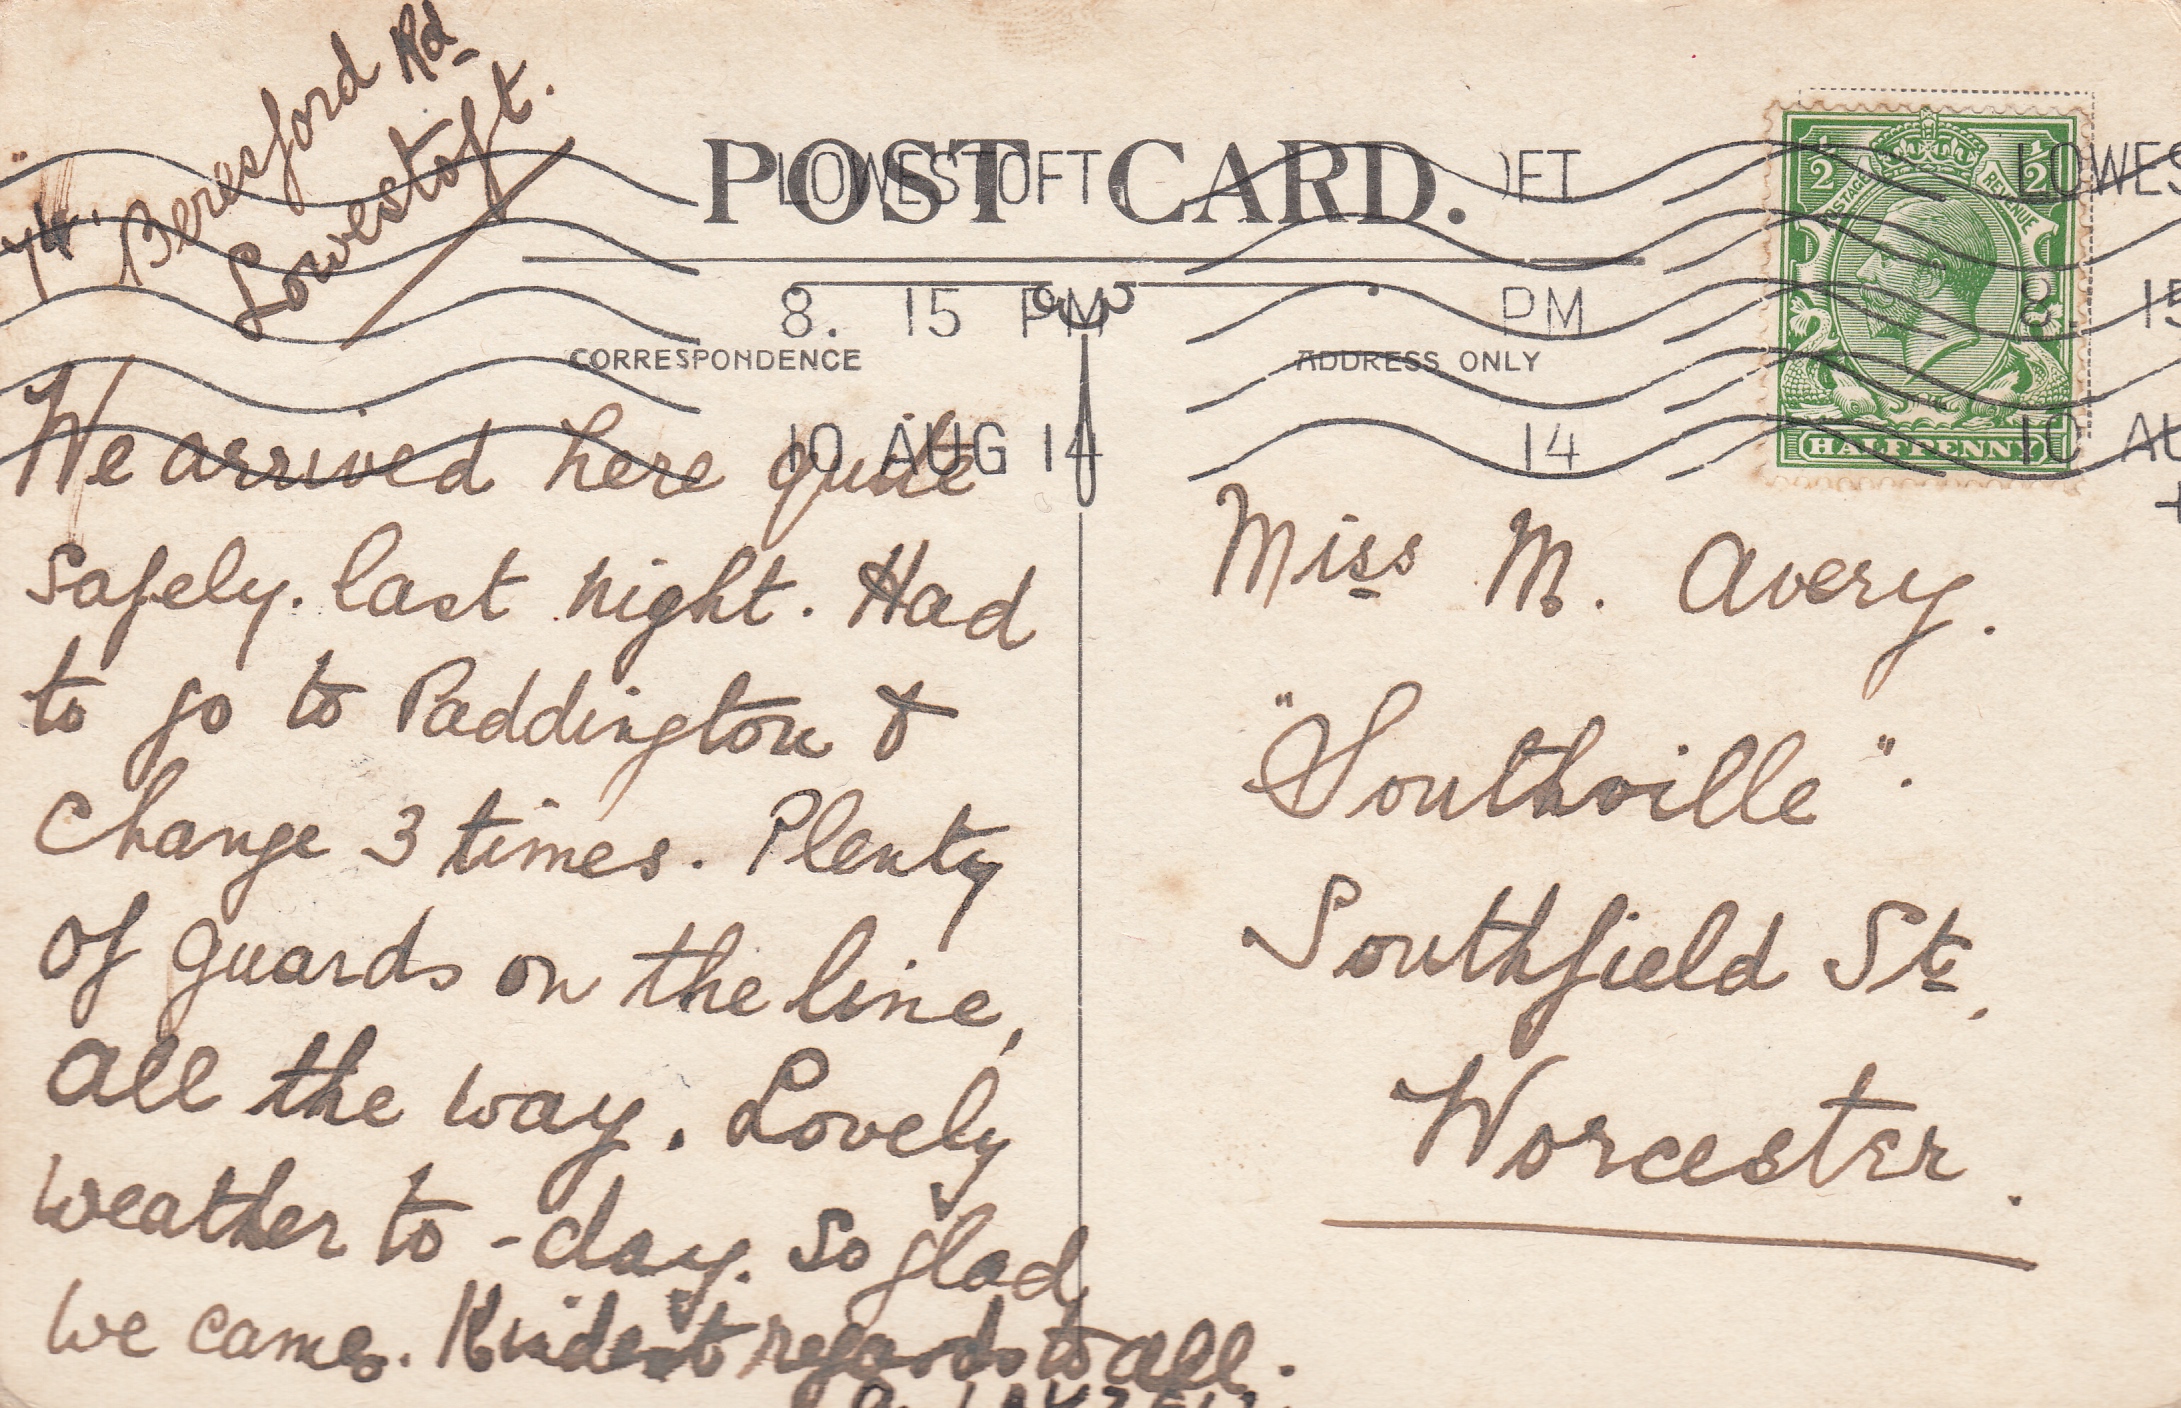 Beresford Rd
Lowestoft.
POST CARD.
LOWESTOFT
OFT
LOWES
8. 15 PM
PM
8. 15
CORRESPONDENCE
ADDRESS ONLY
10 AUG 14
14
10 AU
½ ½
POSTAGE REVENUE
HALFPENNY
We arrived here quite
safely. last night. Had
to go to Paddington &
change 3 times. Plenty
of guards on the line,
all the way. Lovely
weather to-day. So glad
we came. Kindest regards to all.
Miss M. Avery.
"Southville".
Southfield St.,
Worcester.